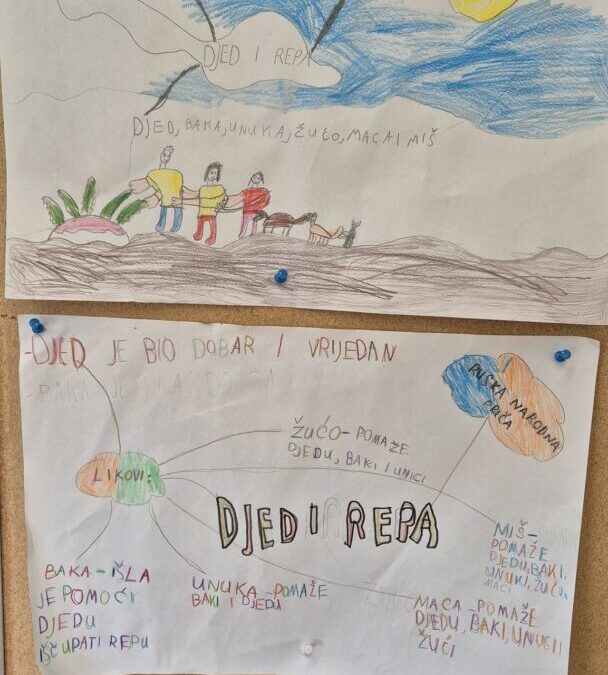 DJED I REPA
DJED, BAKA, UNUKA, ŽUĆO, MACA I MIŠ
-DJED JE BIO DOBAR I VRIJEDAN
RUSKA NARODNA
PRIČA
ŽUĆO-POMAŽE
DJEDU, BAKI I UNICI
LIKOVI:
DJED I REPA
MIŠ-
POMAŽE
DJEDU, BAKI,
UNUKI, ŽUĆI,
MACI
BAKA-IŠLA
JE POMOĆI
DJEDU
IŠČUPATI REPU
UNUKA-POMAŽE
BAKI I DJEDU
MACA-POMAŽE
DJEDU, BAKI, UNUCI I
ŽUĆI